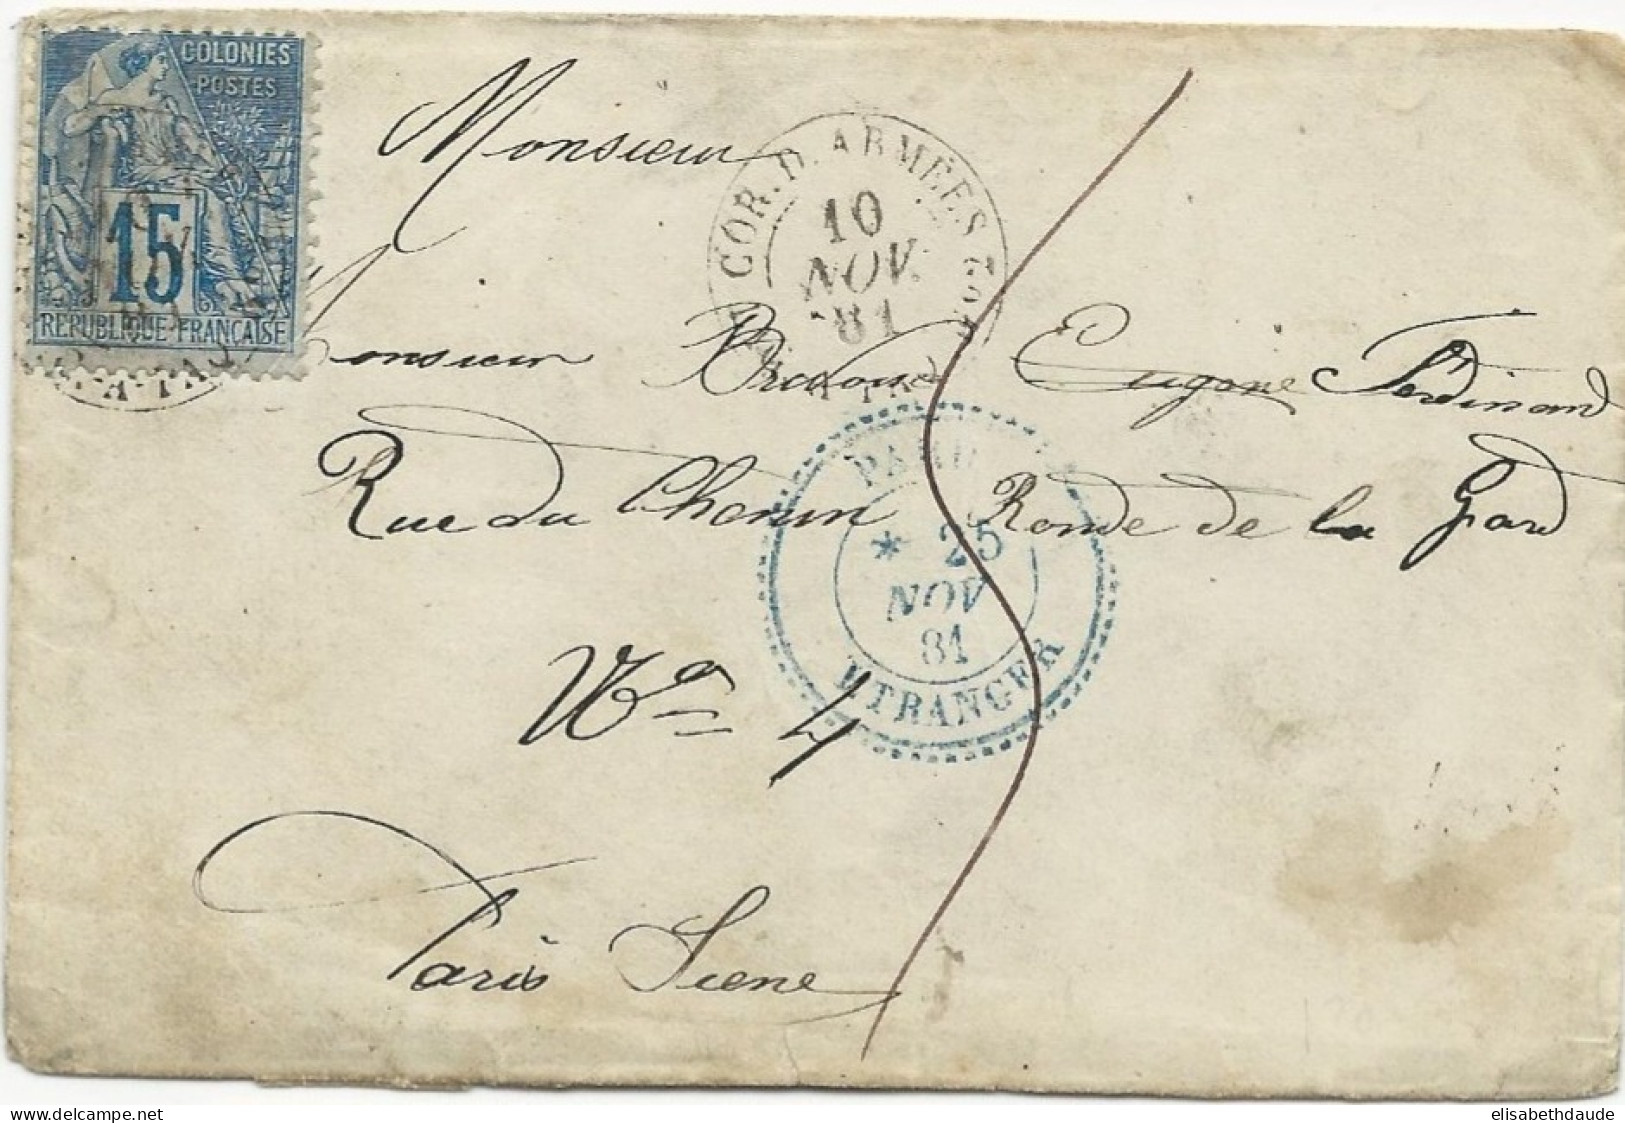 COLONIES
POSTES
15
REPUBLIQUE FRANÇAISE
Monsieur
COR. D. ARMÉES
10
NOV.
81
Monsieur Eugene Ferdinand
Rue du Chemin Ronde de la Gard
PARIS
* 25
NOV
81
ETRANGER
No 4
Paris Siene
elisabethdaude